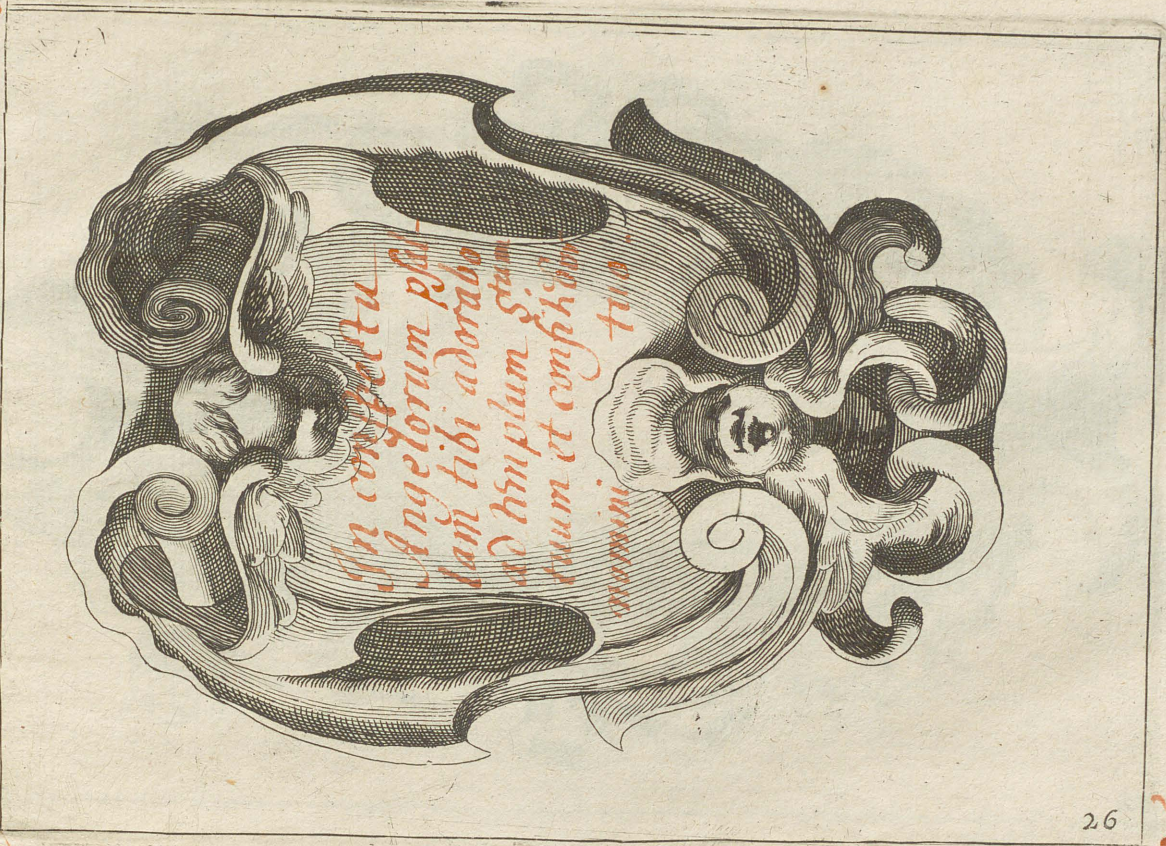 In conspectu
Angelorum psal-
lam tibi adorabo
ad templum Stam
tuum et confitebor
nomini tuo.
26